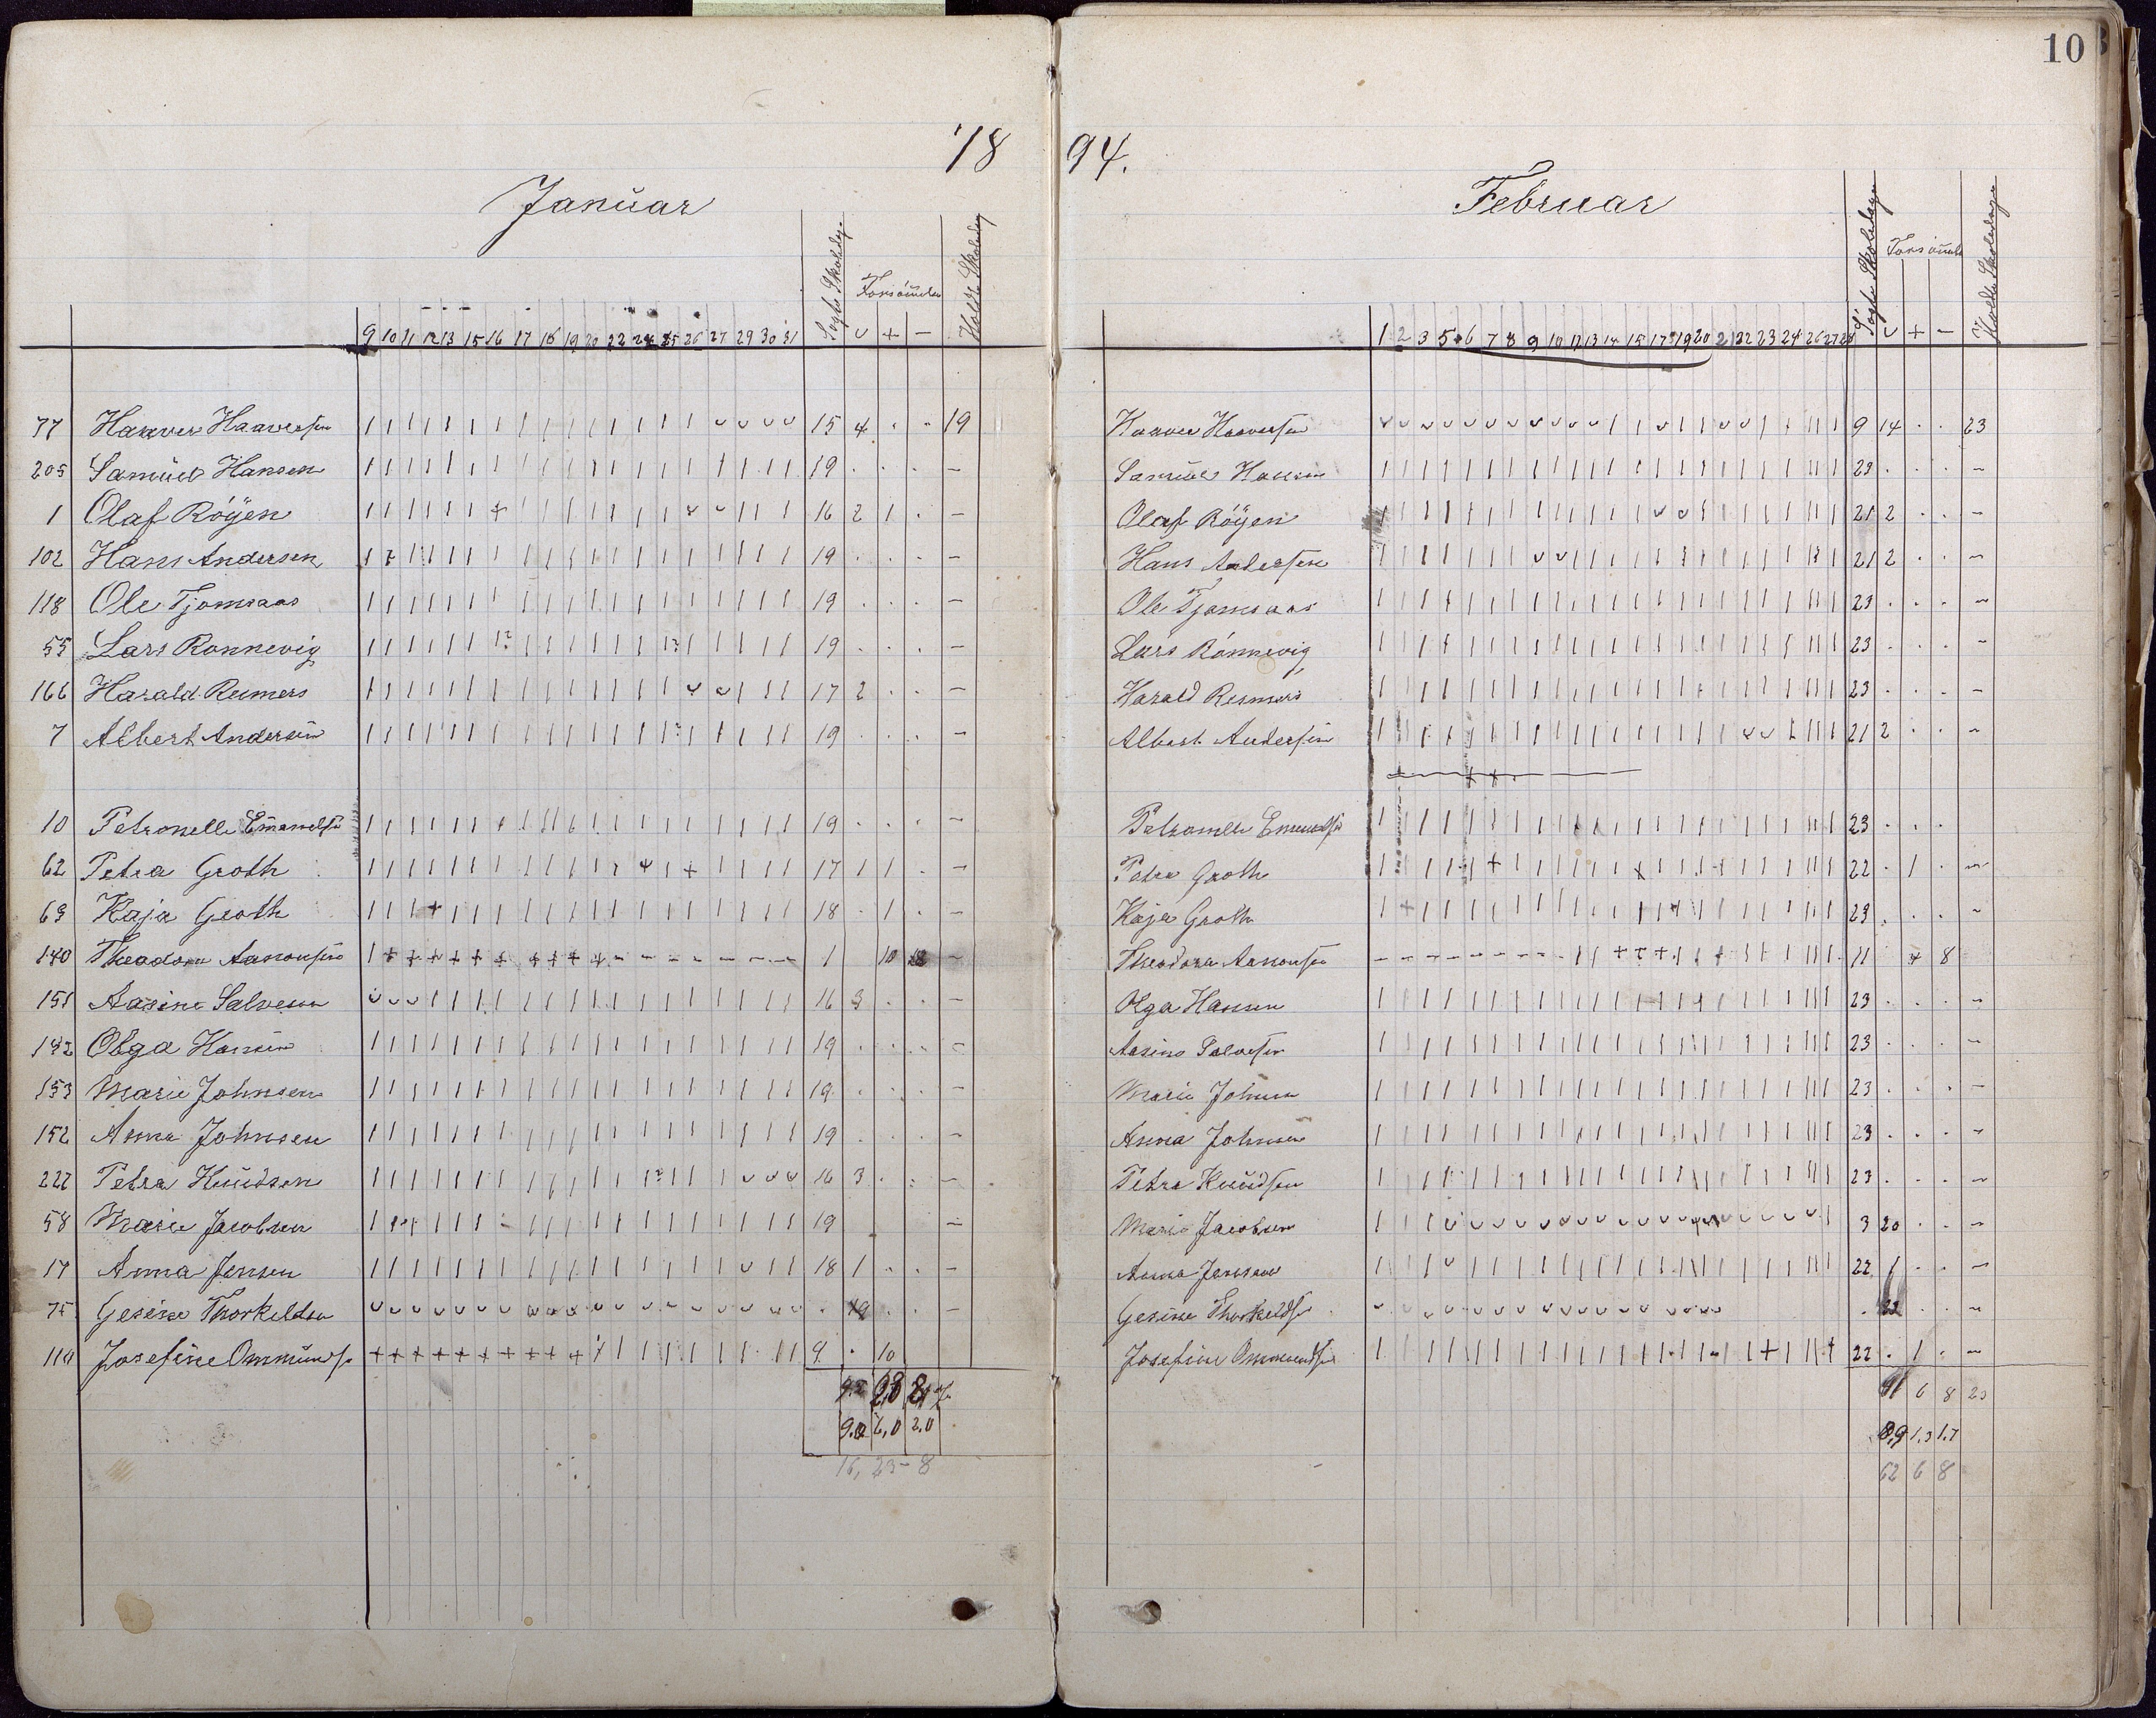 10
18 94.
Januar
Søgte Skoledage
Forsömelser
Holdte Skoledage
9 10 11 12 13 15 16 17 18 19 20 22 24 25 26 27 29 30 31 ᴗ + –
77 Haaver Haaversen 15 4 . . 19
205 Samüel Hansen 19 . . . –
1 Olaf Röyen 16 2 1 . –
102 Hans Andersen 19 . . . –
118 Ole Tjomsaas 19 . . . –
55 Lars Ronnevig 19 . . . –
166 Harald Reimers 17 2 . . –
7 Albert Andersen 19 . . . –
10 Petronelle Emanuelsen 19 . . . –
62 Petra Groth 17 1 1 . –
69 Kaja Groth 18 . 1 . –
140 Theodora Aanonsen 1 10 –
151 Aasine Salvesen 16 3 . . –
142 Olga Hansen 19 . . . –
153 Marie Johnsen 19 . . –
152 Anna Johnsen 19 . . . –
222 Petra Knüdsen 16 3 . . –
58 Marie Jacobsen 19 –
17 Anna Jensen 18 1 . . –
75 Gesine Thorkeldsen . 19 . . –
110 Josefine Ommündsen 9 . 10
9.0 6,0 2.0
16, 23 – 8
Februar
Søgte Skoledage
Forsömelser
Holdte Skoledage
1 2 3 5 6 7 8 9 10 12 13 14 15 17 19 20 21 22 23 24 26 27 28 ᴗ + –
Haaver Haaversen 9 14 . . 23
Samüel Hansen 23 . . . –
Olaf Röyen 21 2 . . –
Hans Andersen 21 2 . . –
Ole Tjomsaas 23 . . . –
Lars Rönnevig 23 . . . –
Harald Reimers 23 . . . –
Albert Andersen 21 2 . . –
Petronelle Emanuelsen 23 . . .
Petra Groth 22 . 1 . –
Kaja Groth 23 . . . –
Theodora Aanonsen 11 4 8
Olga Hansen 23 . . . –
Aasine Salvesen 23 . . . –
Marie Johnsen 23 . . . –
Anna Johnsen 23 . . . –
Petra Knüdsen 23 . . . –
Marie Jacobsen 3 20 . . –
Anna Jenssen 22 1 . . –
Gesine Thorkeldsen . 22 . . –
Josefine Ommundsen 22 . 1 . –
6 8 23
8,9 1.3 1.7
62 6 8